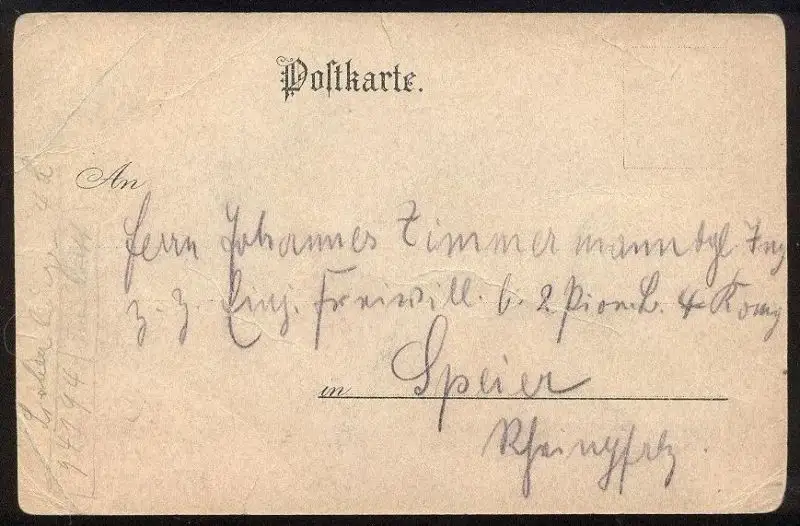 Postkarte.
An
Herrn Johannes Zimmermann kgl. Ing
z. Z. Einj. Freiwill. b. 2 Pion. B. 4 Komp
in Speier
Rheinpfalz.